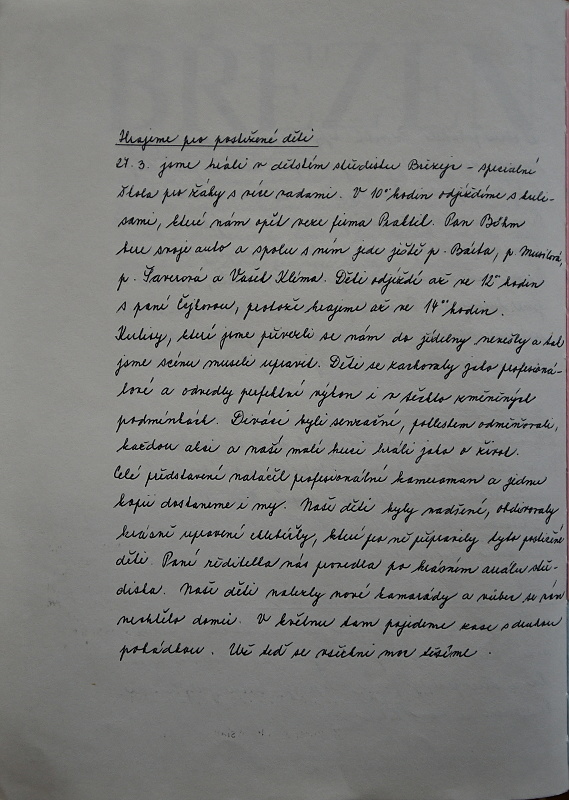 Hrajeme pro postižené děti
27. 3. jsme hráli v dětském středisku Březejc - speciální
škola pro žáky s více vadami. V 10°° hodin odjíždíme s kuli-
sami, které nám opět veze firma Praktil. Pan Böhm
bere svoje auto a spolu s ním jede ještě p. Bárta, p. Musilová,
p. Šaverová a Vašek Klíma. Děti odjíždí až ve 12°° hodin
s paní Cejlovou, protože hrajeme až ve 14°° hodin.
Kulisy, které jsme přivezli se nám do jídelny nevešly a tak
jsme scénu museli upravit. Děti se zachovaly jako profesioná-
lové a odvedly perfektní výkon i v těchto změněných
podmínkách. Diváci byli senzační, potleskem odměňovali,
každou akci a naši malí herci hráli jako o život.
Celé představení natáčel profesionální kameraman a jednu
kopii dostaneme i my. Naše děti byly nadšené, obdivovaly
krásně upravené chlebíčky, které pro ně připravily tyto postižené
děti. Paní ředitelka nás provedla po krásném areálu stře-
diska. Naše děti nalezly nové kamarády a vůbec se nám
nechtělo domů. V květnu tam pojedeme zase s druhou
pohádkou. Už teď se všichni moc těšíme.